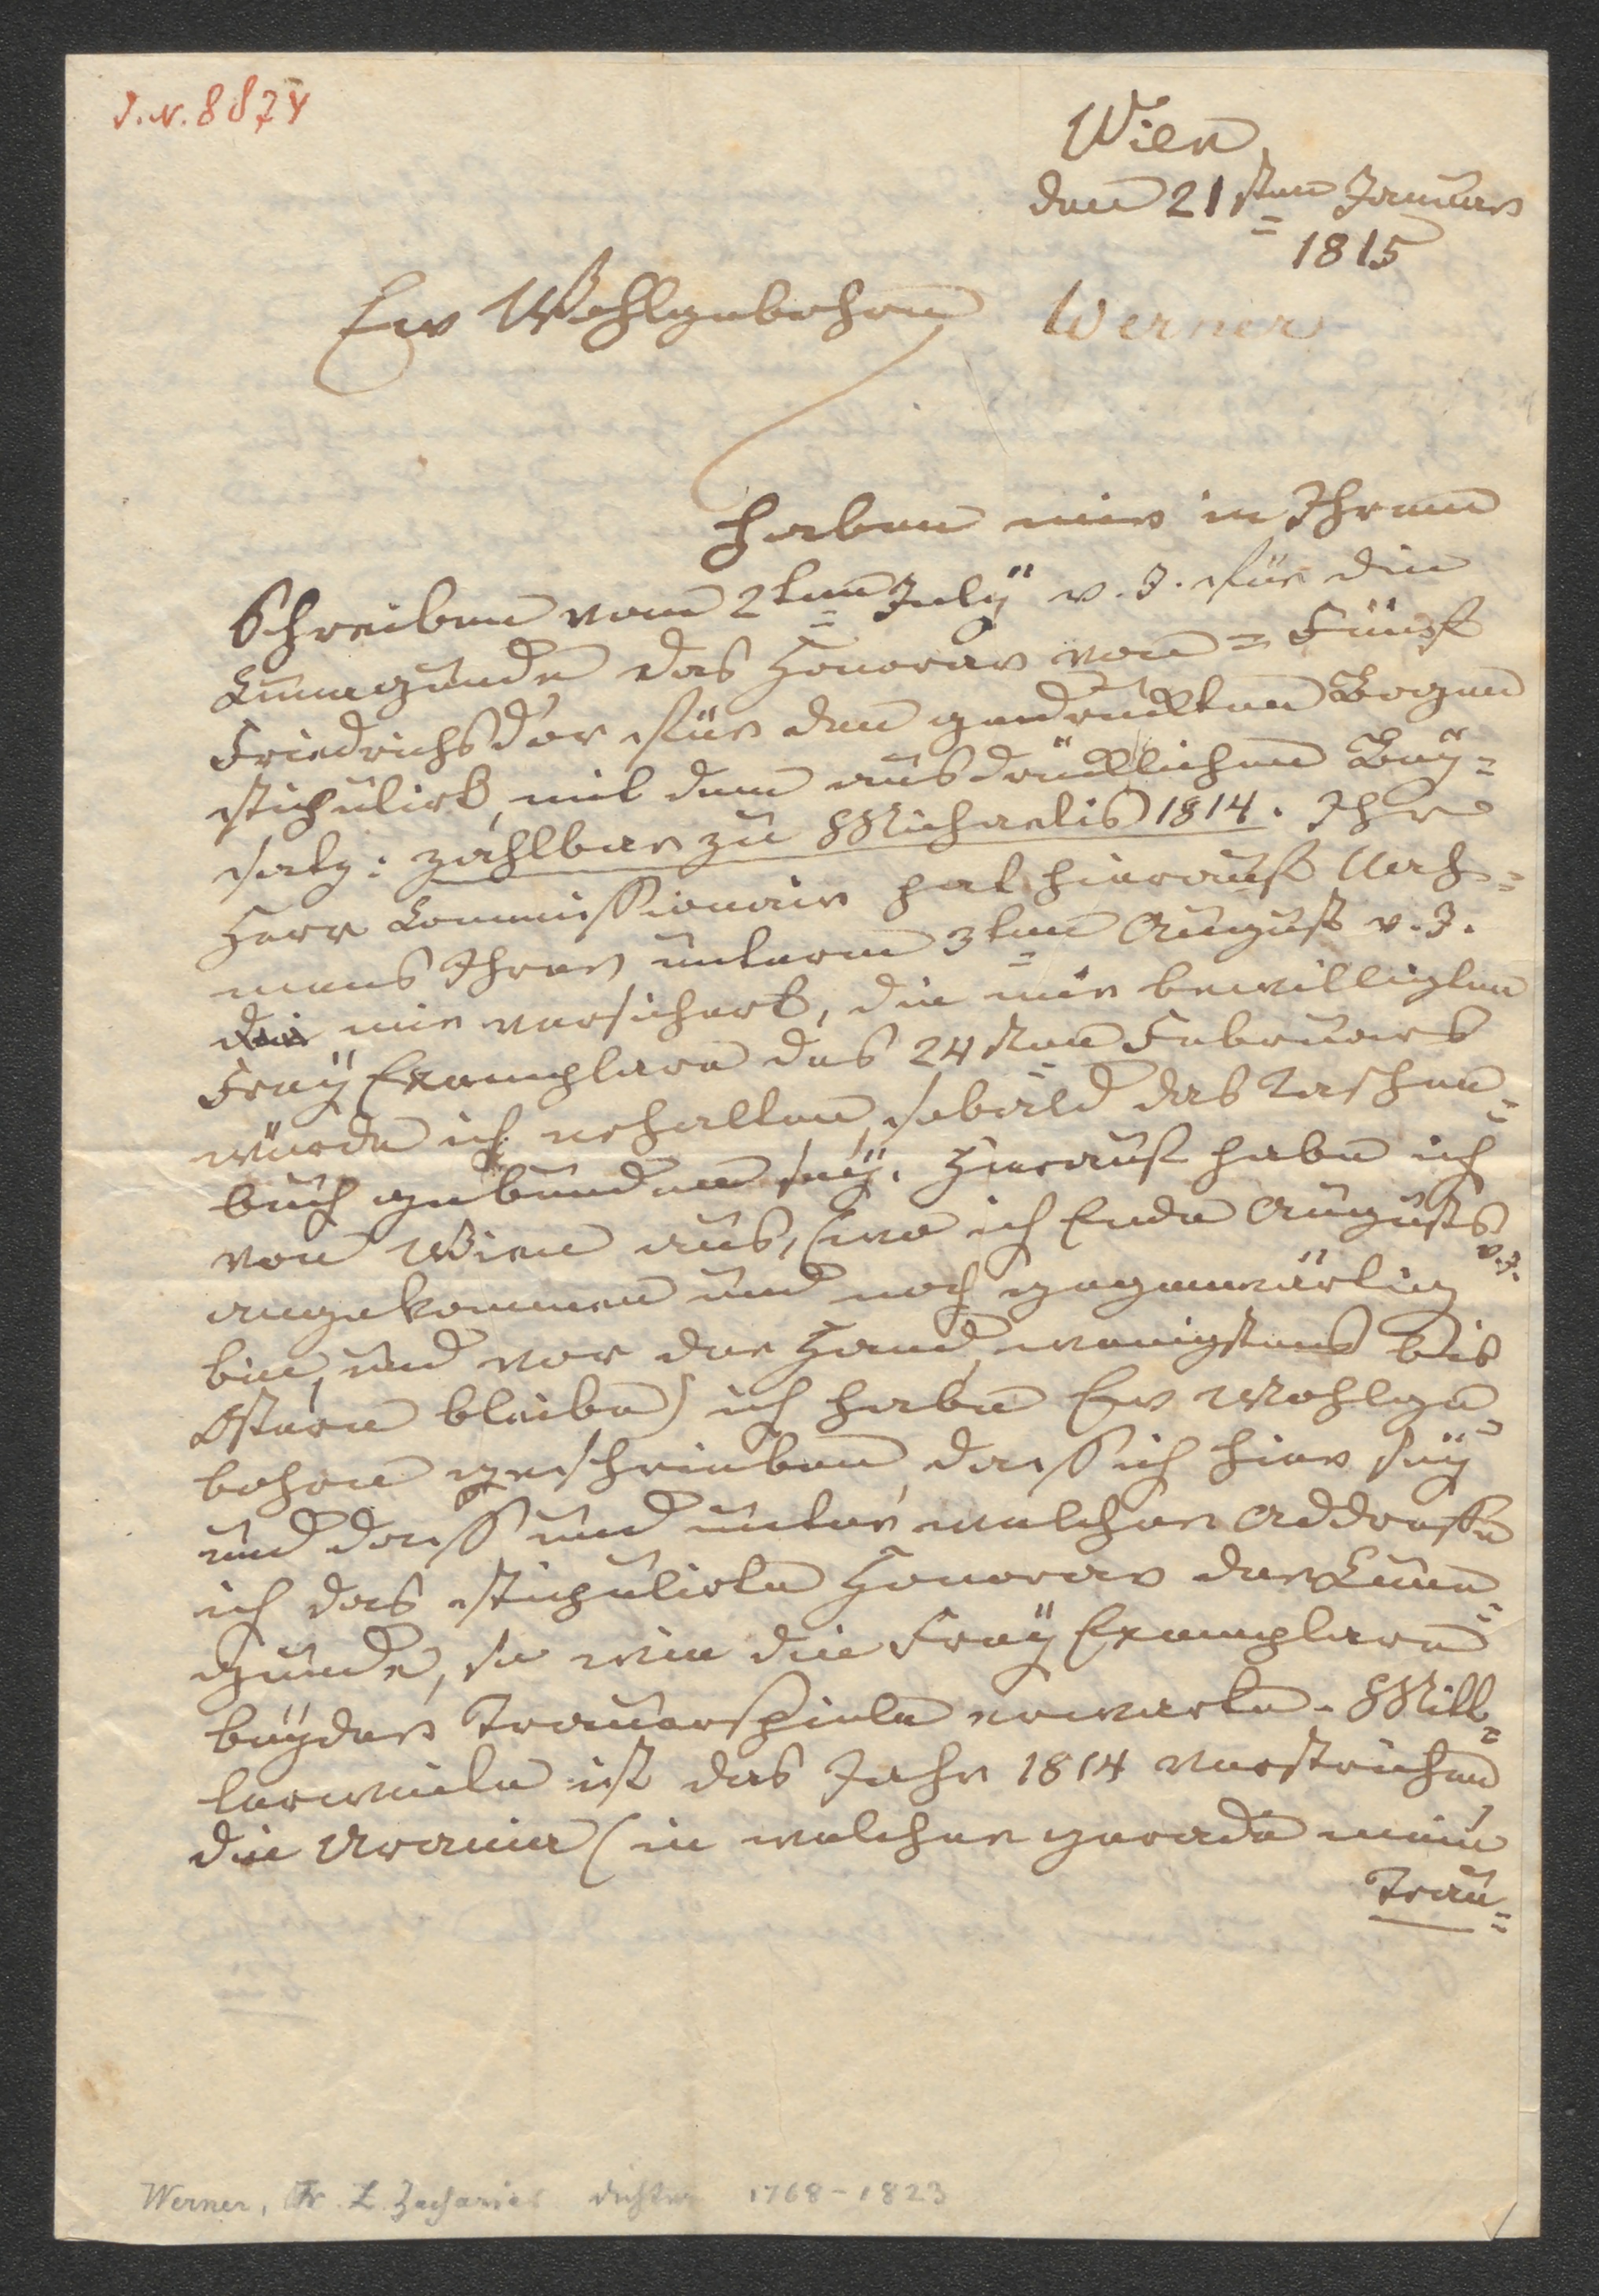 J. N. 8874
Wien
den 21sten Januar
1815
Ew Wohlgebohren
Werner
haben mir in Ihrem
Schreiben vom 2ten July v. J. für die
Cunegunde das Honorar von = Fünf
Friedrichsd'or für den gedruckten Bogen
stipulirt, mit dem ausdrücklichen Bey=
satz: zahlbar zu Michaelis 1814. Ihr
Herr Commissionair hat hierauf Nah=
mens Ihrer unterm 3ten August v. J.
mir versichert, die mir bewilligten
Frey Exemplare des 24sten Februars
würde ich erhalten, sobald das Taschen=
buch gebunden sey. Hierauf habe ich
von Wien aus, (wo ich Ende Augusts
v. J.
angekommen und noch gegenwärtig
bin, und vor der Hand, wenigstens bis
Ostern bleibe) ich habe Ew Wohlge=
bohren geschrieben, daß ich hier sey
und daß und unter welcher Addresse
ich das stipulirte Honorar der Cune=
gunde, so wie die Frey Exemplare
beyder Trauerspiele erwarte. Mitt=
lerweile ist das Jahr 1814 verstrichen
die Urania (in welcher gerade mein
Trau=
Werner, Fr. L. Zacharias Dichter 1768-1823